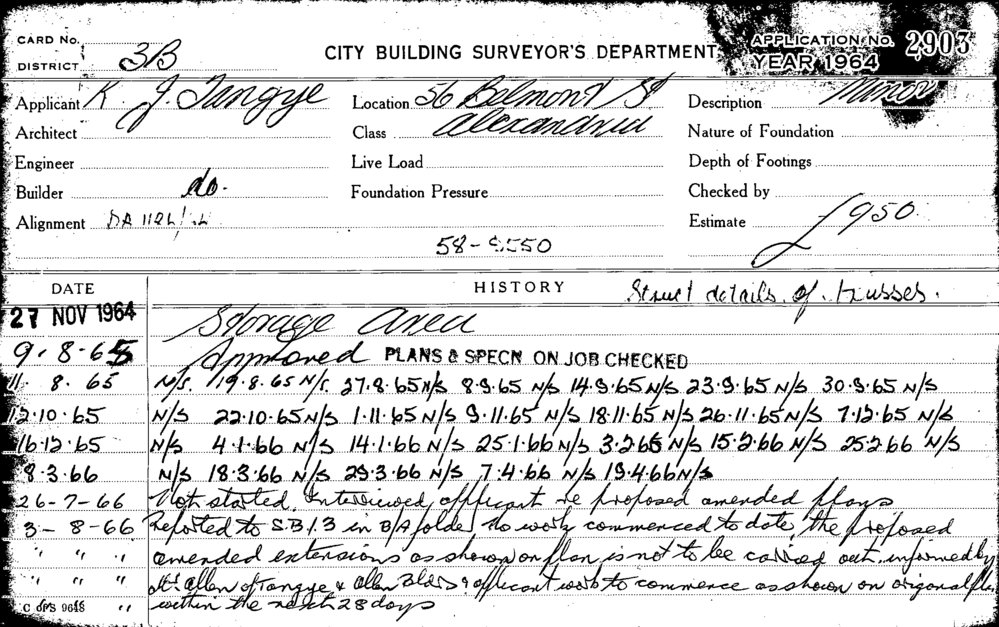 CARD No.
DISTRICT 3B
CITY BUILDING SURVEYOR'S DEPARTMENT
APPLICATION No. 2903
YEAR 1964
Applicant K J. Tangye
Location 56 Belmont St
Alexandria
Description Minor
Architect
Class
Nature of Foundation
Engineer
Live Load
Depth of Footings
Builder do.
Foundation Pressure
Checked by
Alignment
Estimate £950
DATE
HISTORY
Struct details of trusses.
27 NOV 1964 Storage Area
9.8.65 Approved PLANS & SPECN ON JOB CHECKED
11. 8. 65 N/S. 19.8.65 N/S. 27.8.65 N/S 8.9.65 N/S 14.9.65 N/S 23.9.65 N/S 30.9.65 N/S
12.10.65 N/S 22.10.65 N/S 1.11.65 N/S 9.11.65 N/S 18.11.65 N/S 26.11.65 N/S 7.12.65 N/S
16.12.65 N/S 4.1.66 N/S 14.1.66 N/S 25.1.66 N/S 3.2.66 N/S 15.2.66 N/S 25.2.66 N/S
8.3.66 N/S 18.3.66 N/S 29.3.66 N/S 7.4.66 N/S 19.4.66 N/S
26-7-66 Not started. Interviewed applicant re proposed amended plans
3-8-66 Reported to S.B.I.3 in B/A folder No work commenced to date, the proposed
" " " amended extensions as shown on plan is not to be carried out. informed by
" " " Mr. Allen of Tangye & Allen & applicant work to commence as shown on origonal plan
" within the next 28 days